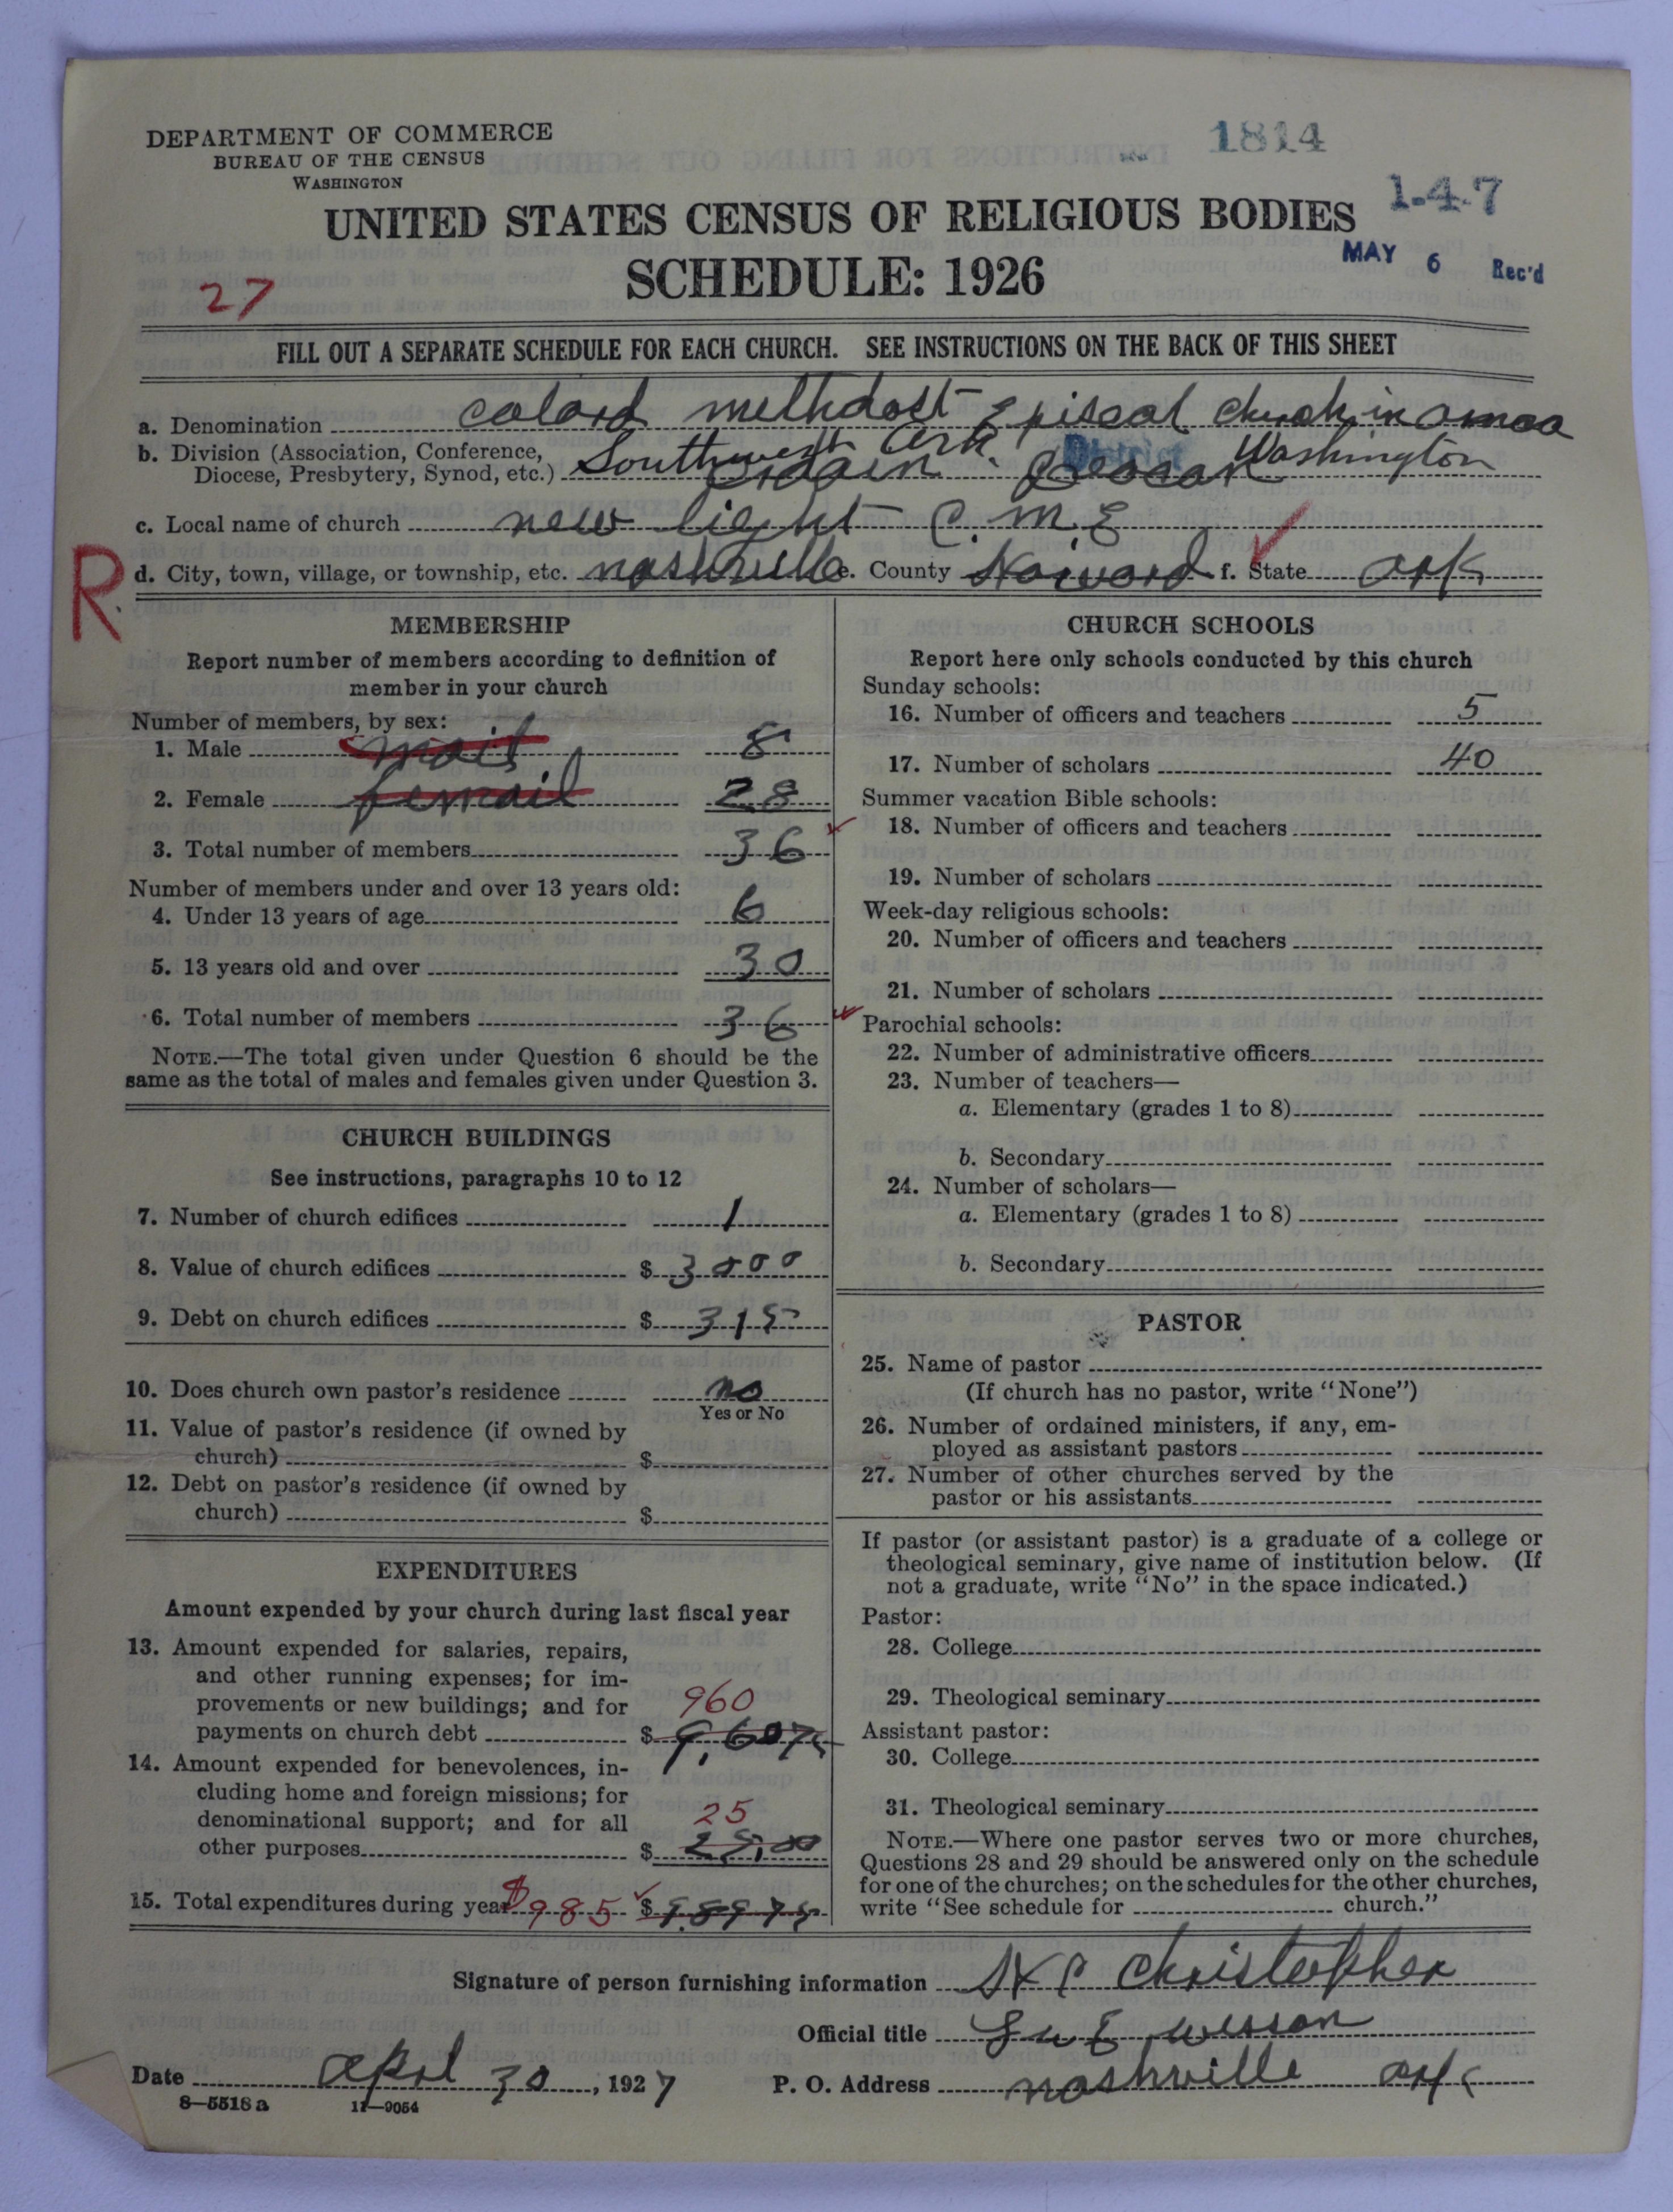 DEPARTMENT OF COMMERCE
BUREAU OF THE CENSUS
WASHINGTON
1814
1-4-7
UNITED STATES CENSUS OF RELIGIOUS BODIES
SCHEDULE: 1926
MAY 6 Rec'd
27
FILL OUT A SEPARATE SCHEDULE FOR EACH CHURCH. SEE INSTRUCTIONS ON THE BACK OF THIS SHEET
a. Denomination colord methdost Episcal church in
b. Division (Association, Conference,
Diocese, Presbytery, Synod, etc.) Southwest Ark. District Washington
c. Local name of church new light C. M. E
R. d. City, town, village, or township, etc. nashville e. County Howard f. State ark
MEMBERSHIP
Report number of members according to definition of
member in your church
Number of members, by sex:
1. Male mail 8
2. Female femail 28
3. Total number of members 36
Number of members under and over 13 years old:
4. Under 13 years of age 6
5. 13 years old and over 30
6. Total number of members 36
NOTE.—The total given under Question 6 should be the
same as the total of males and females given under Question 3.
CHURCH BUILDINGS
See instructions, paragraphs 10 to 12
7. Number of church edifices 1
8. Value of church edifices $ 3000
9. Debt on church edifices $ 315
10. Does church own pastor's residence no
Yes or No
11. Value of pastor's residence (if owned by
church) $
12. Debt on pastor's residence (if owned by
church) $
EXPENDITURES
Amount expended by your church during last fiscal year
13. Amount expended for salaries, repairs,
and other running expenses; for im-
provements or new buildings; and for 960
payments on church debt $ 9,6075
14. Amount expended for benevolences, in-
cluding home and foreign missions; for
denominational support; and for all 25
other purposes $ 25,00
15. Total expenditures during year $985 $
CHURCH SCHOOLS
Report here only schools conducted by this church
Sunday schools:
16. Number of officers and teachers 5
17. Number of scholars 40
Summer vacation Bible schools:
18. Number of officers and teachers
19. Number of scholars
Week-day religious schools:
20. Number of officers and teachers
21. Number of scholars
Parochial schools:
22. Number of administrative officers
23. Number of teachers—
a. Elementary (grades 1 to 8)
b. Secondary
24. Number of scholars—
a. Elementary (grades 1 to 8)
b. Secondary
PASTOR
25. Name of pastor
(If church has no pastor, write "None")
26. Number of ordained ministers, if any, em-
ployed as assistant pastors
27. Number of other churches served by the
pastor or his assistants
If pastor (or assistant pastor) is a graduate of a college or
theological seminary, give name of institution below. (If
not a graduate, write "No" in the space indicated.)
Pastor:
28. College
29. Theological seminary
Assistant pastor:
30. College
31. Theological seminary
NOTE.—Where one pastor serves two or more churches,
Questions 28 and 29 should be answered only on the schedule
for one of the churches; on the schedules for the other churches,
write "See schedule for church."
Signature of person furnishing information Christopher
Official title
Date aprl 30, 1927 P. O. Address nashville ark
8—5518a 11—9054